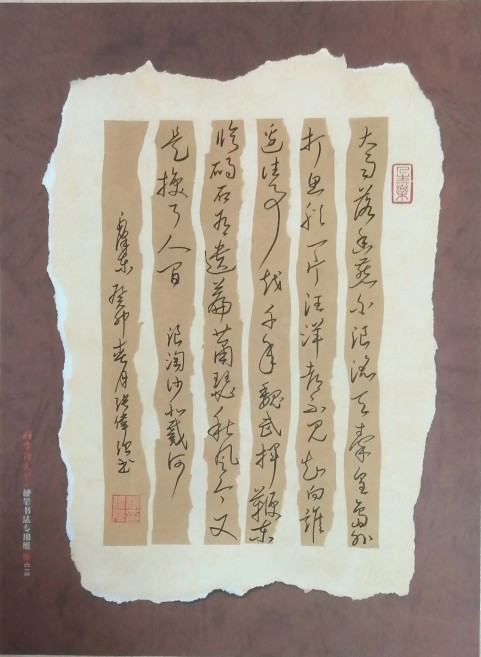 大雨落幽燕白浪滔天秦皇島外
打鱼船一片汪洋都不见知向誰
边往事越千年魏武揮鞭東
临碣石有遗篇萧瑟秋风今又
是换了人间 浪淘沙北戴河
澤东 癸卯春月 偉强书
硬笔书法专用纸